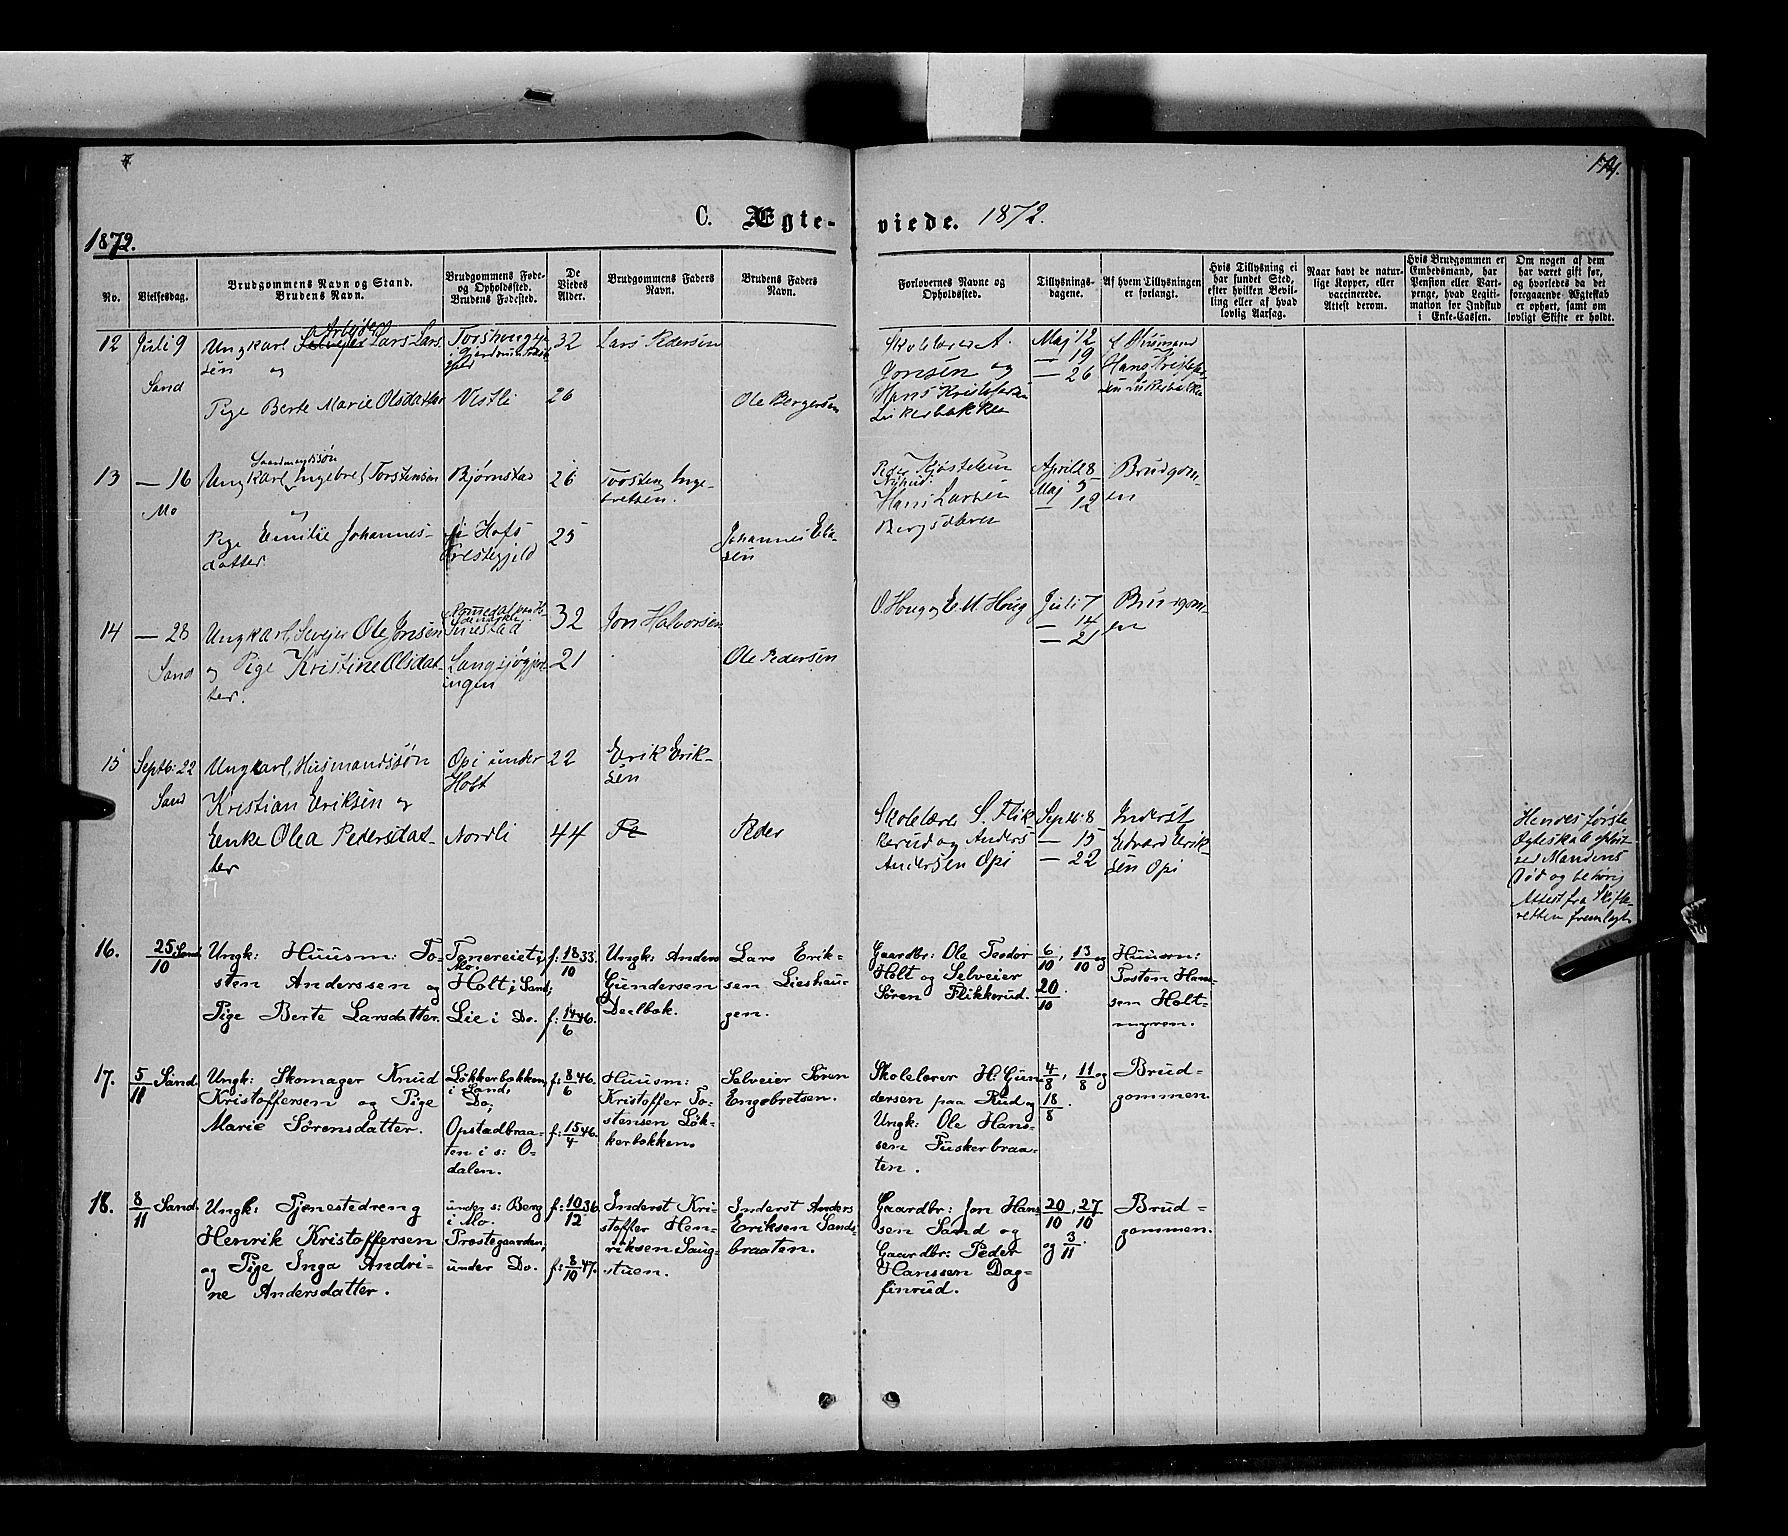 174.
C. Ægte- viede. 1872.
1872.
No.
Vielsesdag.
Brudgommens Navn og Stand.
Brudens Navn.
Brudgommens Føde-
og Opholdssted.
Brudens Fødested.
De
Viedes
Alder.
Brudgommens Faders
Navn.
Brudens Faders
Navn.
Forlovernes Navne og
Opholdssted.
Tillysnings-
dagene.
Af hvem Tillysningen
er forlangt.
Hvis Tillysning ei
har fundet Sted,
efter hvilken Bevil-
ling eller af hvad
lovlig Aarsag.
Naar havt de natur-
lige Kopper, eller
vaccinerede.
Attest derom.
Hvis Brudgommen er
Embedsmand, har
Pension eller Vart-
penge, hvad Legiti-
mation for Indskud
i Enke-Cassen.
Om nogen af dem
har været gift før,
og hvorledes da det
foregaaende Ægteskab
er ophørt, samt om
lovligt Skifte er holdt.
12
Juli 9
Sand
Arbejder
Ungkarl Selvejer Lars Lars
sen og
Pige Berte Marie Olsdatter
Vestli
32
26
Lars Pedersen
Ole Bergersen
Skolelærer A.
Jonsen og
Hans Kristofersen
Maj 12
— 19
— 26
13
— 16
Mo
Gaardmandssøn
Ungkarl Ingebret Torstensen
og
Pige Emilie Johannes-
datter
Bjørnstad
i Hofs
Prestegjeld
26
25
Torsten Inge-
bretsen.
Johannes Elia-
sen
Hans Larsen
April 28
Maj 5
— 12
Brudgom-
en
14
— 28
Sand
Ungkarl, Sevejer Ole Jonsen
og Pige Kristine Olsdat-
ter.
32
21
Jon Halvorsen
Ole Pedersen
O. Houg og E. M. Houg
Juli 7
— 14
— 21
Brudgom-
en
15
Septb: 22
Sand
Ungkarl, Husmandssøn
Kristian Eriksen og
Enke Olea Pedersdat-
ter
Opi under
Holt
Nordli
22
44
Erik Erik-
sen
Pe
Peder
Skolelærer S. Flik
kerud og Anders
Andersen Opi
Septb: 8
— 15
— 22
Inderst
Edvard Erik-
sen Opi
Hendes første
Ægteskab ophør-
ved Mandens
Død og behørig
Attest fra Skifte-
retten fremlagt
16.
25/10 Sand
Ungk: Huusm: To-
sten Anderssen og
Pige Berte Larsdatter.
Tenereiet i
Mo.
Holt i Sand,
Lie i Do.
f: 18/10 33.
f: 14/6 46.
Ungk: Anders
Gundersen
Deelbak.
Lars Erik-
sen Lieshau-
gen.
Gaardbr: Ole Teodor
Holt og Selveier
Sören Flikkerud.
6/10, 13/10 og
20/10.
Huusm:
Tosten Hans-
sen Holt-
myren.
17.
5/11 Sand
Ungk: Skomager Knud
Kristoffersen og Pige
Marie Sörensdatter.
Lökkerbakken
i Sand,
Do,
Opstadbraa-
ten i s: O-
dalen.
f: 8/6 46.
f: 15/4 46.
Huusm:
Kristoffer To-
stensen Lök-
kerbakken.
Selveier Sören
Engebretsen.
Skolelærer H: Gun-
dersen paa Rud og
Ungk: Ole Hans-
sen Tuskerbraa-
ten.
4/8, 11/8 og
18/8.
Brud-
gommen
18.
8/11 Sand.
Ungk: Tjenestedreng
Henrik Kristoffersen
og Pige Inga Andri-
ne Andersdatter.
under s: Berg
i Mo.
Præstegaarden,
under Do.
f: 10/12 36
f: 8/10 47.
Inderst Kri-
stoffer Hen-
riksen Saug-
stuen.
Inderst Anders
Eriksen Sands-
braaten.
Gaardbr: Jon Hans
sen Sand og
Gaardbr: Peder
Hanssen Dag-
finrud.
20/10, 27/10
og 3/11.
Brud-
gommen.